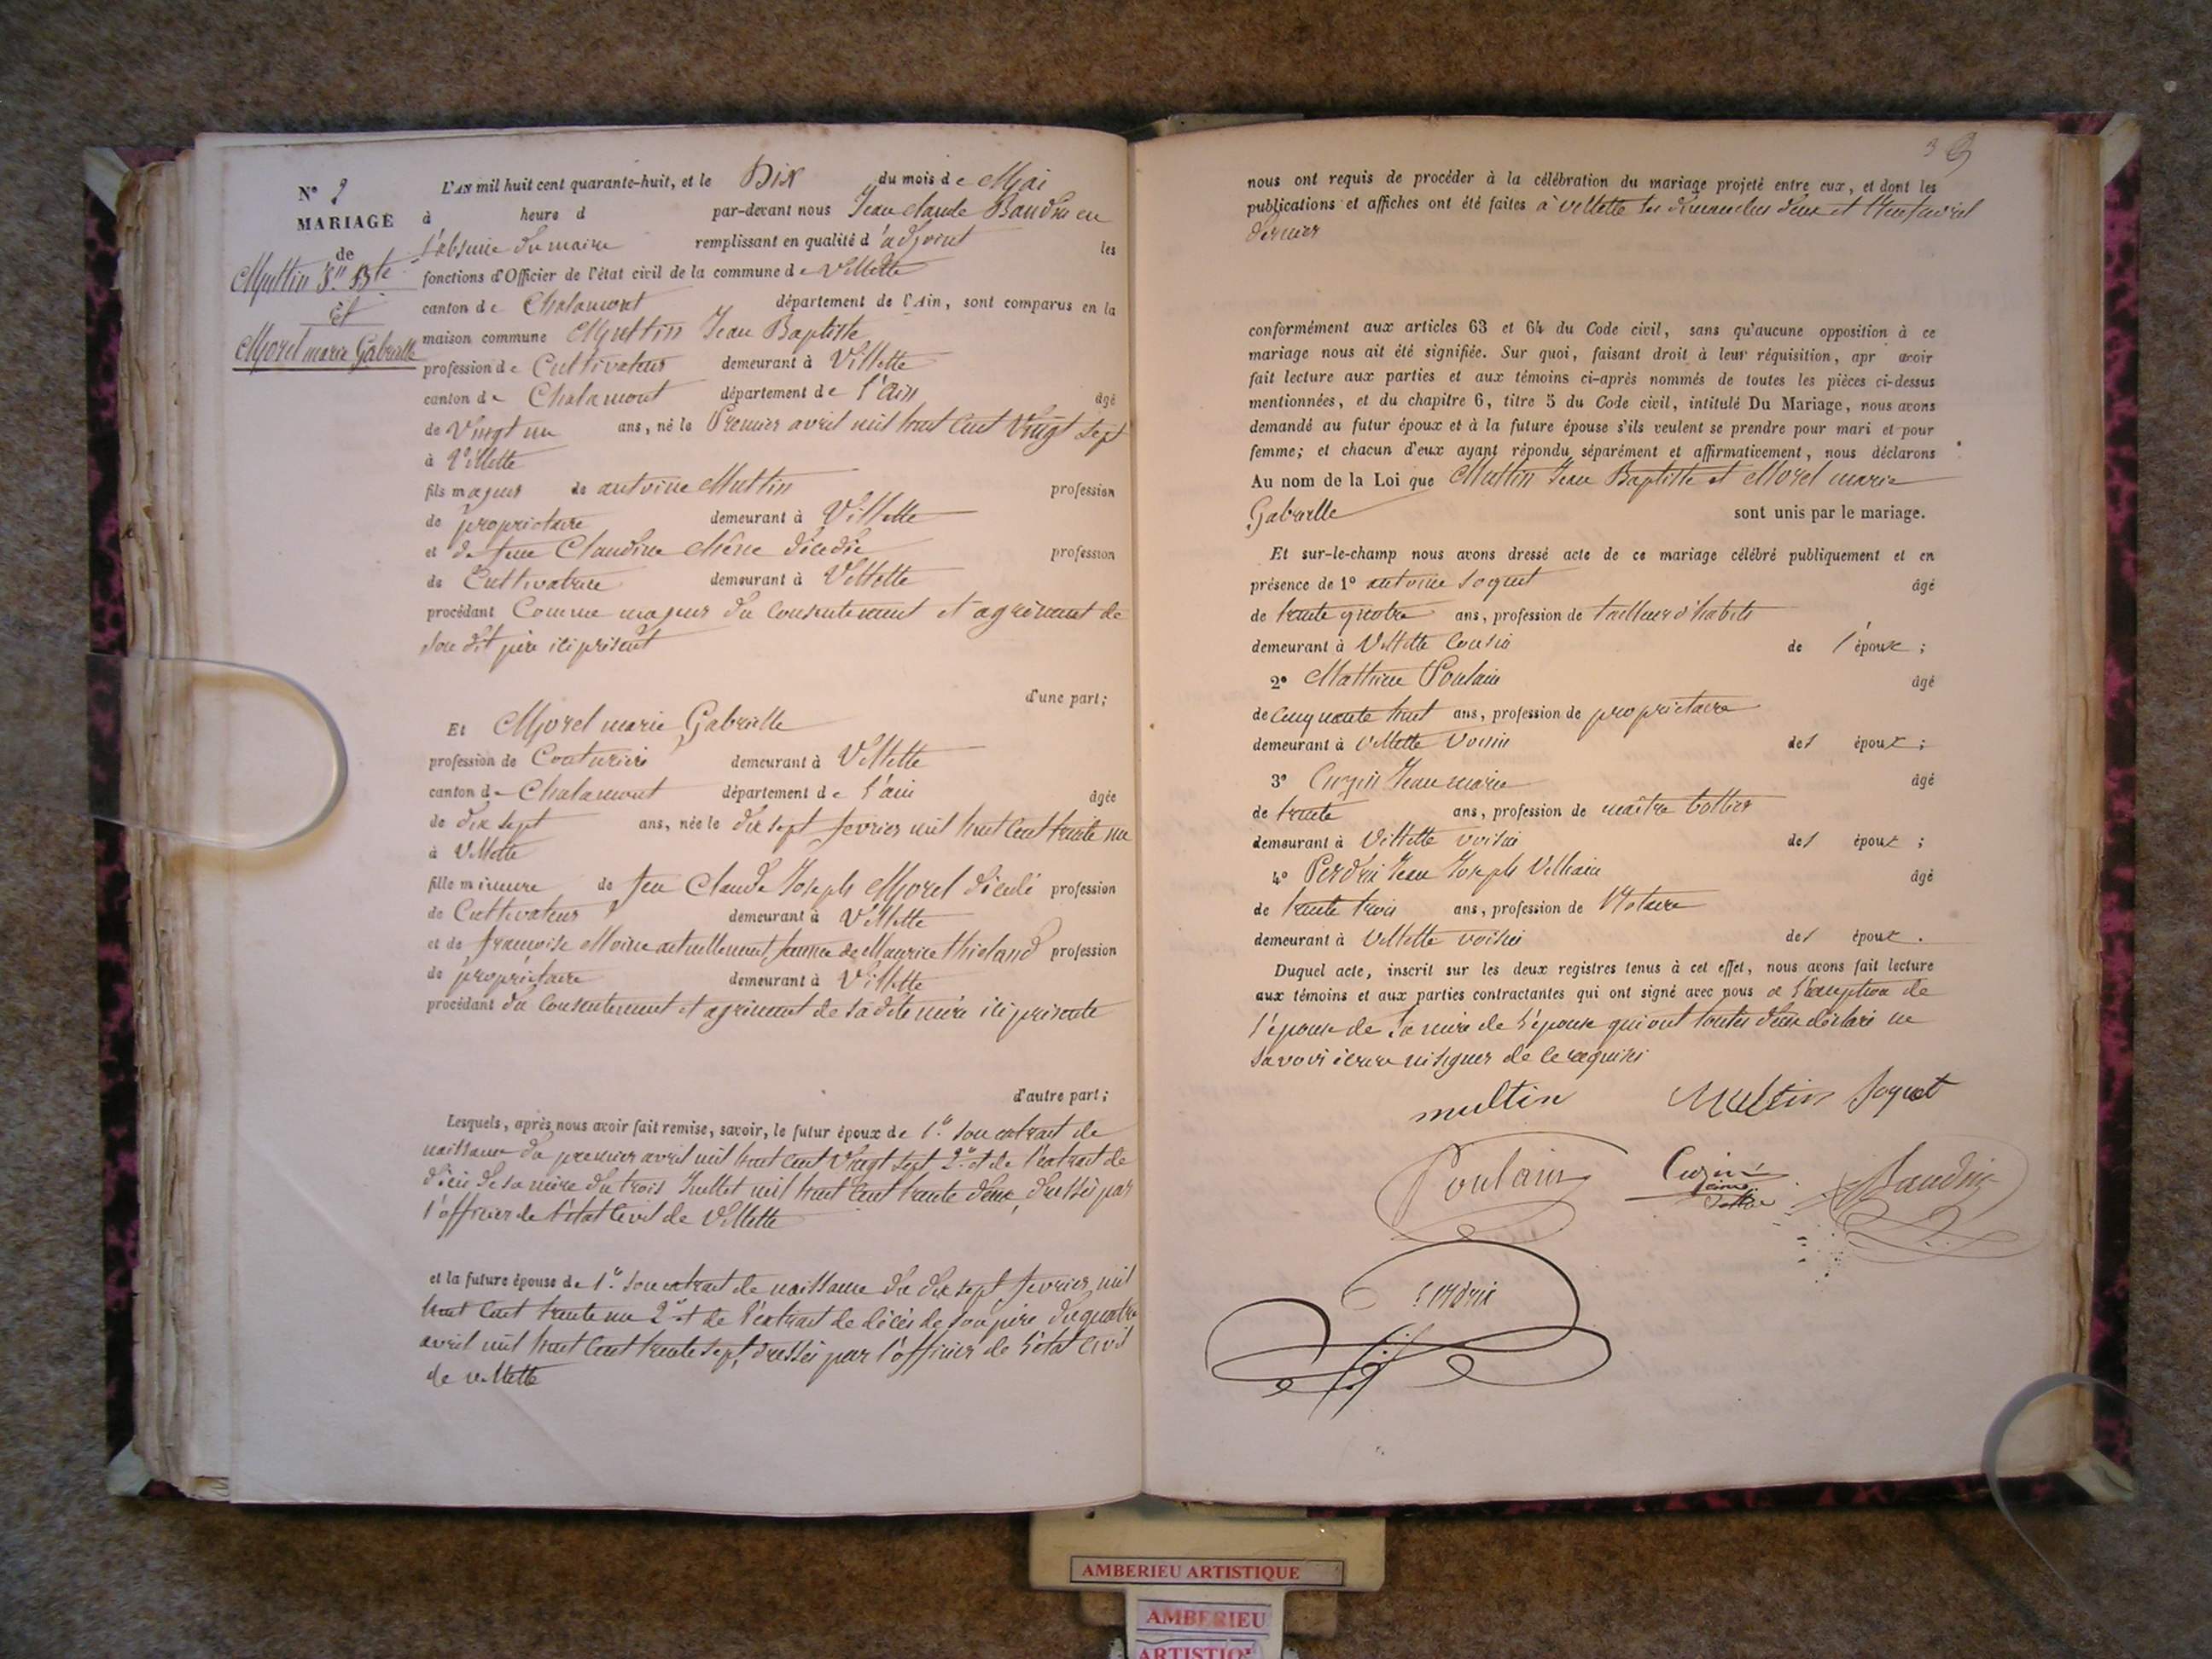 N° 2
MARIAGE
de
Muttin Jn Bte
Et
Morel marie Gabrielle
L'AN mil huit cent quarante-huit, et le Dix du mois de Mai
à heure d par-devant nous Jean claude Baudin en
l'absence du maire remplissant en qualité d'adjoint les
fonctions d'Officier de l'état civil de la commune de Villette
canton de Chalamont département de l'Ain, sont comparus en la
maison commune Muttin Jean Baptiste
profession de Cultivateur demeurant à Villette
canton de Chalamont département de l'ain âgé
de Vingt un ans, né le Premier avril mil huit Cent Vingt sept
à Villette
fils majeur de antoine Muttin profession
de propriétaire demeurant à Villette
et de feue Claudine décédée profession
de Cultivatrice demeurant à Villette
procédant Comme majeur du consentement et agrément de
son dit père ici présent
d'une part;
Et Morel marie Gabrielle
profession de Couturière demeurant à Villette
canton de Chalamont département de l'ain âgée
de dix sept ans, née le dix sept fevrier mil huit Cent trente un
à Villette
fille mineure de feu Claude Joseph Morel décédé profession
de Cultivateur demeurant à Villette
et de francoise Moine actuellement femme de Maurice profession
de propriétaire demeurant à Villette
procédant du consentement et agrément de sa dite mère ici présente
d'autre part;
Lesquels, après nous avoir fait remise, savoir, le futur époux de 1° son extrait de
naissance du premier avril mil huit Cent Vingt sept 2° et de l'extrait de
décès de sa mère du trois Juillet mil huit Cent trente deux, dressés par
l'officier de l'état Civil de Villette
et la future épouse de 1° son extrait de naissance du dix sept fevrier mil
huit Cent trente un 2° et de l'extrait de décès de son père du quatre
avril mil huit Cent trente sept, dressés par l'officier de l'état Civil
de villette
nous ont requis de procéder à la célébration du mariage projeté entre eux, et dont les
publications et affiches ont été faites à villette les dimanches deux et avril
dernier
conformément aux articles 63 et 64 du Code civil, sans qu'aucune opposition à ce
mariage nous ait été signifiée. Sur quoi, faisant droit à leur réquisition, apr avoir
fait lecture aux parties et aux témoins ci-après nommés de toutes les pièces ci-dessus
mentionnées, et du chapitre 6, titre 5 du Code civil, intitulé Du Mariage, nous avons
demandé au futur époux et à la future épouse s'ils veulent se prendre pour mari et pour
femme; et chacun d'eux ayant répondu séparément et affirmativement, nous déclarons
Au nom de la Loi que Muttin Jean Baptiste et Morel marie
Gabrielle sont unis par le mariage.
Et sur-le-champ nous avons dressé acte de ce mariage célébré publiquement et en
présence de 1° antoine Soquet âgé
de trente quatre ans, profession de tailleur d'habits
demeurant à Villette Cousin de l'épouse ;
2° Mathieu Poulain âgé
de cinquante huit ans, profession de propriétaire
demeurant à villette voisin des époux ;
3° Cuzin Jean marie âgé
de trente ans, profession de maître bottier
demeurant à Villette voisin des époux ;
4° Perdrix Jean Joseph âgé
de trente trois ans, profession de Notaire
demeurant à Villette voisin des époux .
Duquel acte, inscrit sur les deux registres tenus à cet effet, nous avons fait lecture
aux témoins et aux parties contractantes qui ont signé avec nous à l'exception de
l'épouse de la mère de l'épouse qui ont toutes deux déclaré ne
savoir écrire ni signer de ce requises
muttin Muttin Soquet
Poulain Cuzin Baudin
Perdrix
AMBERIEU ARTISTIQUE
AMBERIEU
ARTISTIQUE